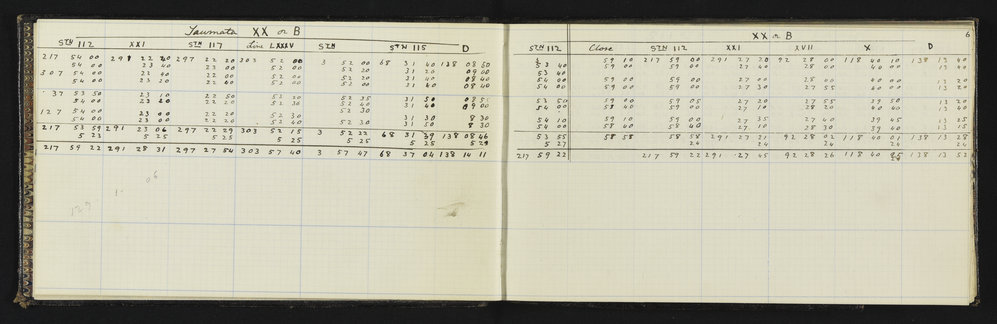 Taumata XX or B
STN 112 XXI STN 117 Line LXXXV STN STN 115 D
217 54 00 291 22 20 297 22 20 303 52 00 3 52 00 68 31 40 138 08 50
54 00 23 40 23 00 52 00 52 20 31 20 09 00
307 54 00 22 40 22 00 52 00 52 20 31 40 08 40
54 00 23 20 22 40 52 00 52 00 31 40 08 40
37 53 50 23 10 22 50 52 20 52 35 31 50
54 00 23 20 22 20 52 30 52 40 31 40 09 00
127 54 00 23 00 22 20 52 30 52 30 31 30 8 30
54 00 23 00 22 20 52 40 52 30 31 50 8 30
217 53 59 291 23 06 297 22 29 303 52 15 3 52 22 68 31 39 138 08 46
5 23 5 25 5 25 5 25 5 25 5 25 5 25
217 59 22 291 28 31 297 27 54 303 57 40 3 57 47 68 37 04 138 14 11
XX or B
6
STN 112 Close STN 112 XXI XVII X D
53 40 59 10 217 59 00 291 27 20 92 28 00 118 40 10 138 13 40
53 40 59 00 59 00 27 40 28 00 40 00 13 40
54 00 59 00 59 00 27 00 28 00 40 00 13 20
54 00 59 00 59 00 27 30 27 55 40 00 13 20
53 50 59 00 59 05 27 20 27 55 39 50 13 20
54 00 58 40 59 00 27 10 28 20 40 40 13 40
54 10 59 10 59 00 27 35 27 40 39 45 13 25
54 00 58 40 58 40 27 10 28 30 39 40 13 15
53 55 58 58 58 58 291 27 21 92 28 02 118 40 01 138 13 28
5 27 24 24 24 24 24
217 59 22 217 59 22 291 27 45 92 28 26 118 40 25 138 13 52